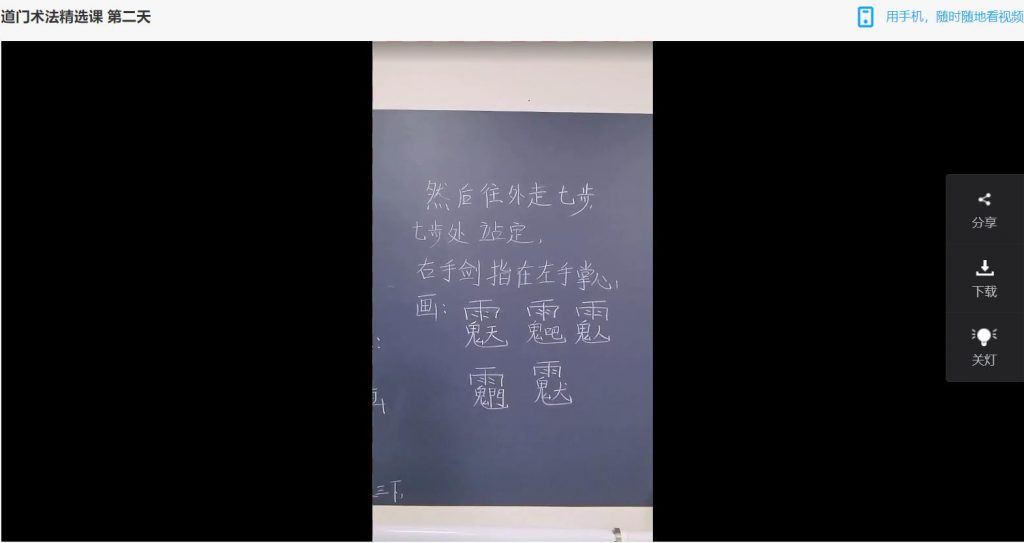 道门术法精选课 第二天
用手机，随时随地看视频
然后往外走七步，
七步处 站定，
右手剑指在左手掌心，
画：
三下，
分享
下载
关灯